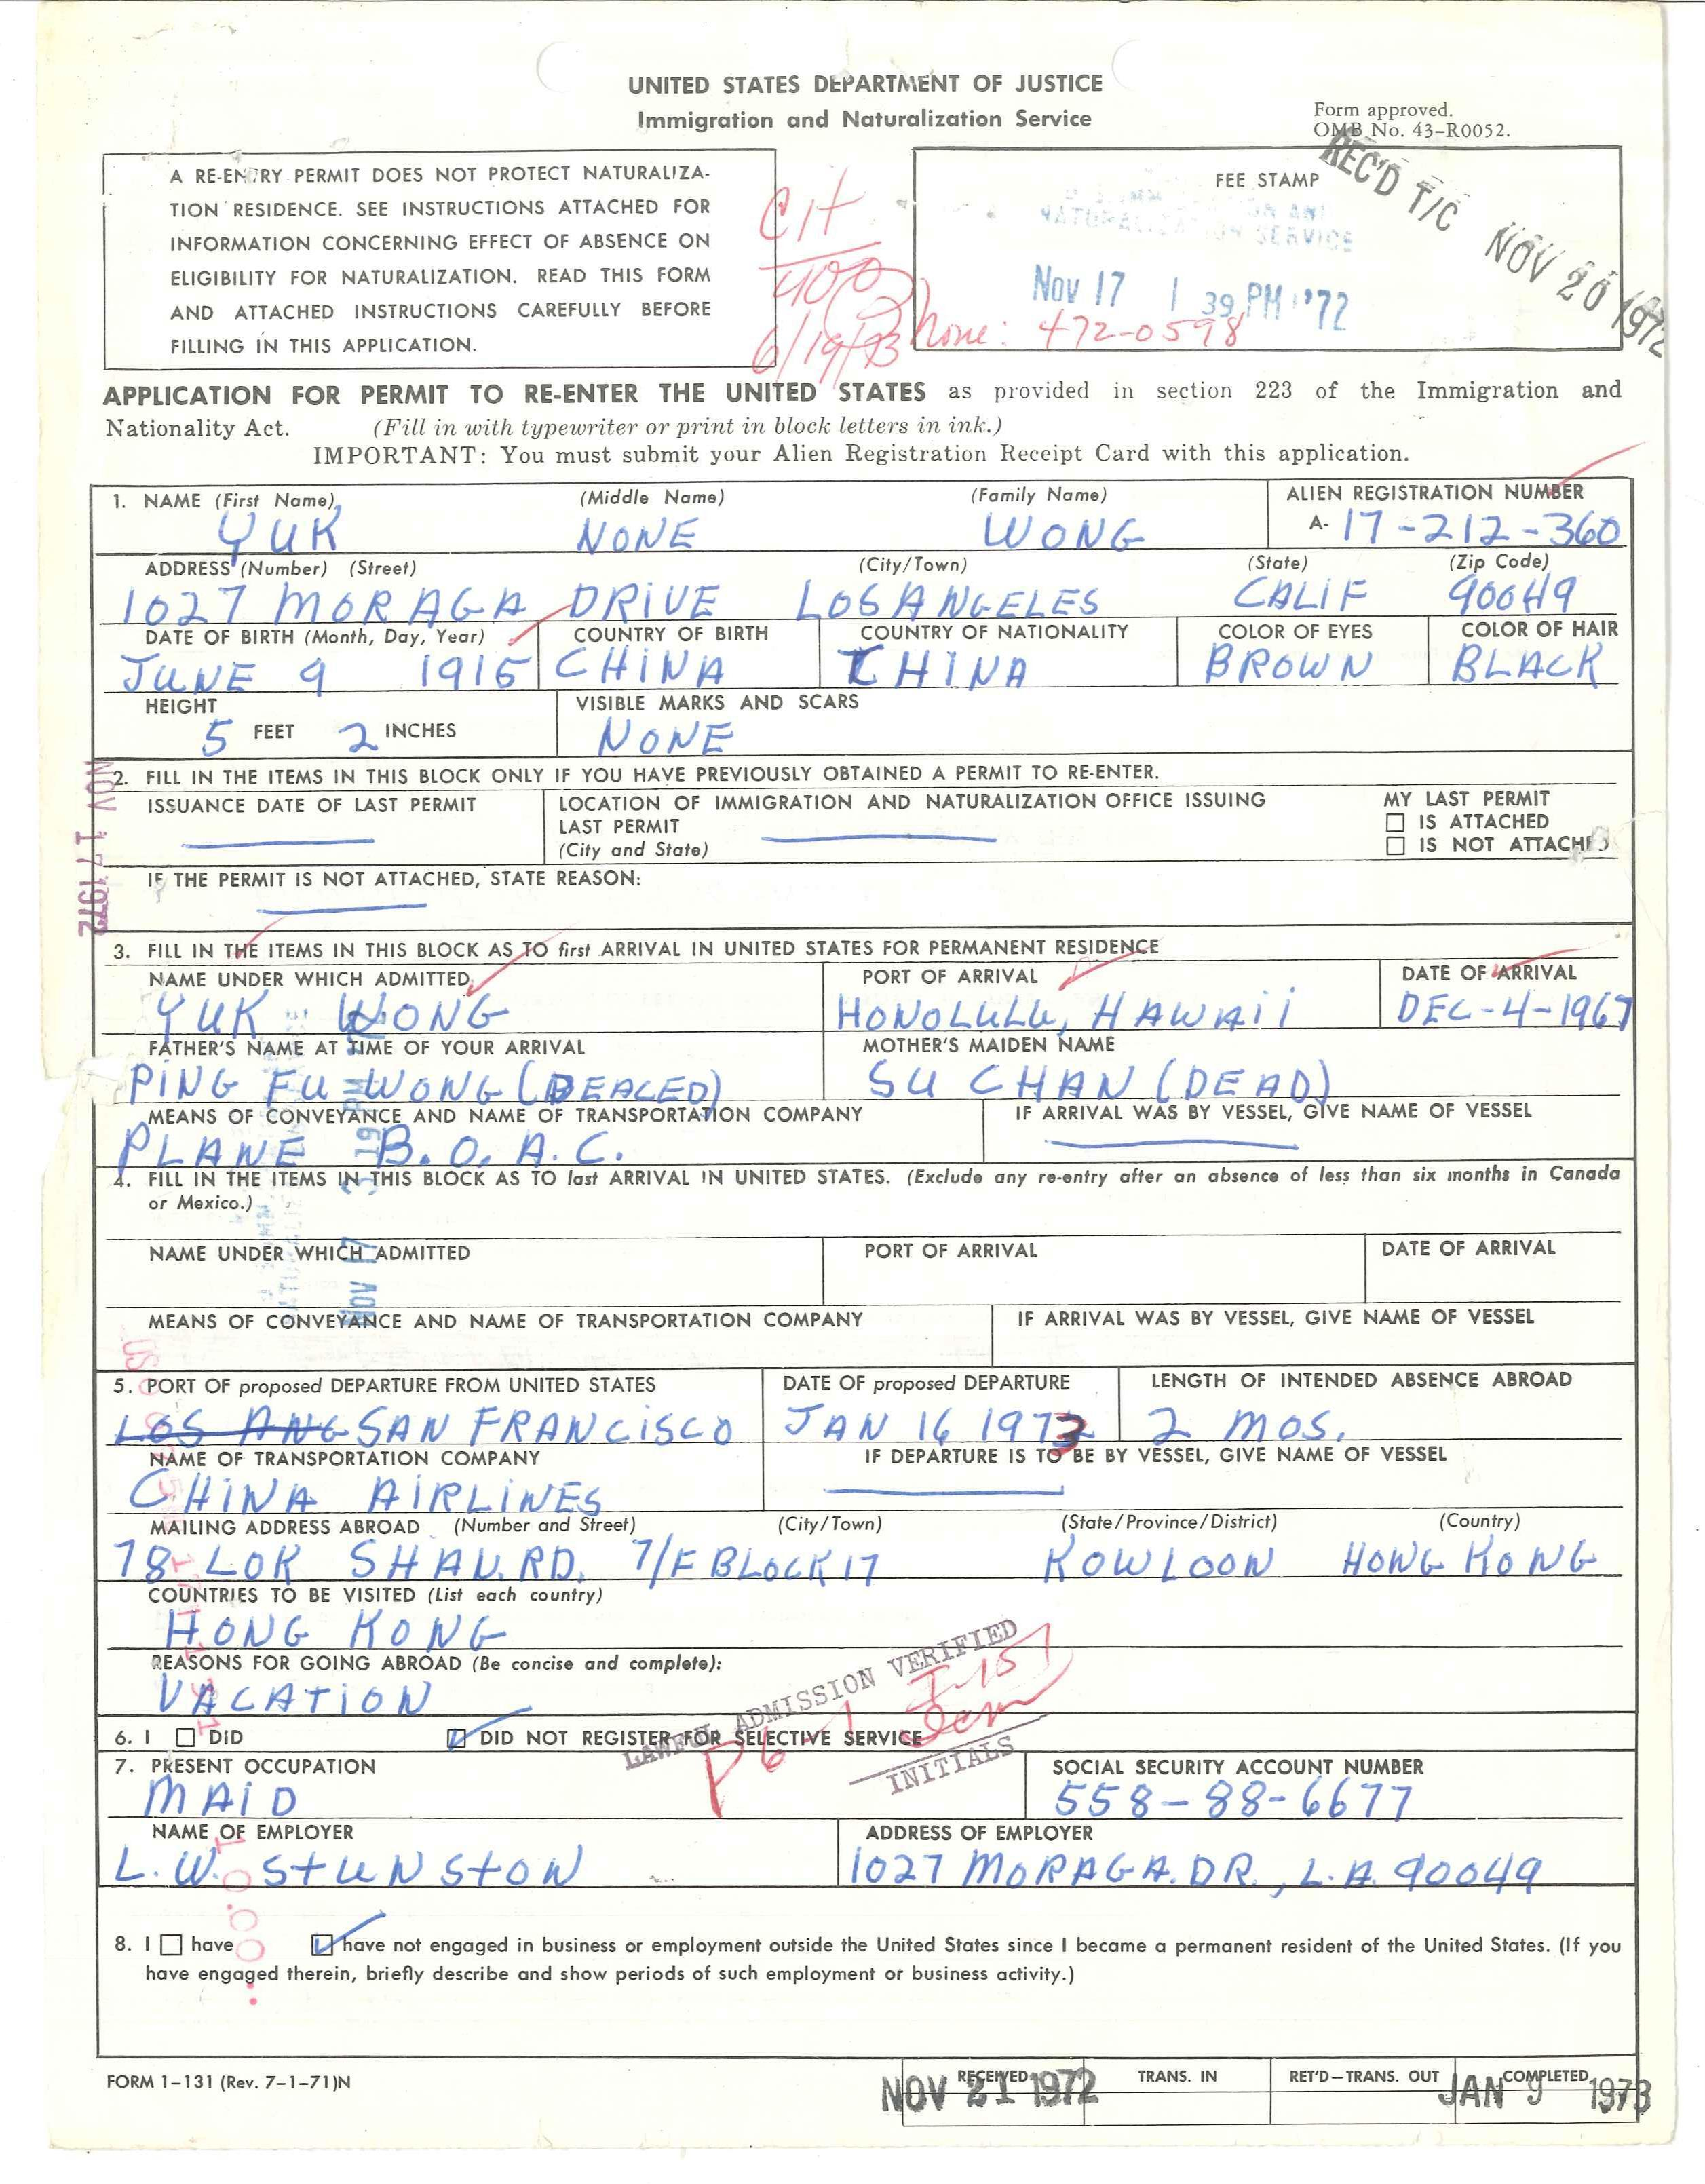 UNITED STATES DEPARTMENT OF JUSTICE
Immigration and Naturalization Service
Form approved.
OMB No. 43-R0052.
A RE-ENTRY PERMIT DOES NOT PROTECT NATURALIZA-
TION RESIDENCE. SEE INSTRUCTIONS ATTACHED FOR
INFORMATION CONCERNING EFFECT OF ABSENCE ON
ELIGIBILITY FOR NATURALIZATION. READ THIS FORM
AND ATTACHED INSTRUCTIONS CAREFULLY BEFORE
FILLING IN THIS APPLICATION.
Cit
400
6/19/93
FEE STAMP
NATURALIZATION SERVICE
Nov 17 1 39 PM '72
Phone: 472-0598
REC'D T/C NOV 20 1972
APPLICATION FOR PERMIT TO RE-ENTER THE UNITED STATES as provided in section 223 of the Immigration and
Nationality Act. (Fill in with typewriter or print in block letters in ink.)
IMPORTANT: You must submit your Alien Registration Receipt Card with this application.
1. NAME (First Name) (Middle Name) (Family Name) ALIEN REGISTRATION NUMBER
YUK NONE WONG A- 17-212-360
ADDRESS (Number) (Street) (City/Town) (State) (Zip Code)
1027 MORAGA DRIVE LOS ANGELES CALIF 90049
DATE OF BIRTH (Month, Day, Year) COUNTRY OF BIRTH COUNTRY OF NATIONALITY COLOR OF EYES COLOR OF HAIR
JUNE 9 1915 CHINA CHINA BROWN BLACK
HEIGHT VISIBLE MARKS AND SCARS
5 FEET 2 INCHES NONE
NOV 17 1972
2. FILL IN THE ITEMS IN THIS BLOCK ONLY IF YOU HAVE PREVIOUSLY OBTAINED A PERMIT TO RE-ENTER.
ISSUANCE DATE OF LAST PERMIT LOCATION OF IMMIGRATION AND NATURALIZATION OFFICE ISSUING MY LAST PERMIT
LAST PERMIT IS ATTACHED
(City and State) IS NOT ATTACHED
IF THE PERMIT IS NOT ATTACHED, STATE REASON:
3. FILL IN THE ITEMS IN THIS BLOCK AS TO first ARRIVAL IN UNITED STATES FOR PERMANENT RESIDENCE
NAME UNDER WHICH ADMITTED PORT OF ARRIVAL DATE OF ARRIVAL
YUK WONG HONOLULU, HAWAII DEC-4-1967
FATHER'S NAME AT TIME OF YOUR ARRIVAL MOTHER'S MAIDEN NAME
PING FU WONG (DEACED) SU CHAN (DEAD)
MEANS OF CONVEYANCE AND NAME OF TRANSPORTATION COMPANY IF ARRIVAL WAS BY VESSEL, GIVE NAME OF VESSEL
PLANE B.O.A.C.
4. FILL IN THE ITEMS IN THIS BLOCK AS TO last ARRIVAL IN UNITED STATES. (Exclude any re-entry after an absence of less than six months in Canada
or Mexico.)
NAME UNDER WHICH ADMITTED PORT OF ARRIVAL DATE OF ARRIVAL
Nov 17 3 19 PM
MEANS OF CONVEYANCE AND NAME OF TRANSPORTATION COMPANY IF ARRIVAL WAS BY VESSEL, GIVE NAME OF VESSEL
5. PORT OF proposed DEPARTURE FROM UNITED STATES DATE OF proposed DEPARTURE LENGTH OF INTENDED ABSENCE ABROAD
LOS ANG SAN FRANCISCO JAN 16 1973 2 MOS.
NAME OF TRANSPORTATION COMPANY IF DEPARTURE IS TO BE BY VESSEL, GIVE NAME OF VESSEL
CHINA AIRLINES
MAILING ADDRESS ABROAD (Number and Street) (City/Town) (State/Province/District) (Country)
78 LOK SHAN.RD. 7/F BLOCK 17 KOWLOON HONG KONG
COUNTRIES TO BE VISITED (List each country)
HONG KONG
REASONS FOR GOING ABROAD (Be concise and complete):
VACATION
LAWFUL ADMISSION VERIFIED
I-151
P6-1
INITIALS
6. I DID DID NOT REGISTER FOR SELECTIVE SERVICE
7. PRESENT OCCUPATION SOCIAL SECURITY ACCOUNT NUMBER
MAID 558-88-6677
NAME OF EMPLOYER ADDRESS OF EMPLOYER
L.W. STUNSTON 1027 MORAGA.DR., L.A. 90049
8. I have have not engaged in business or employment outside the United States since I became a permanent resident of the United States. (If you
have engaged therein, briefly describe and show periods of such employment or business activity.)
FORM 1-131 (Rev. 7-1-71)N
RECEIVED TRANS. IN RET'D-TRANS. OUT COMPLETED
NOV 21 1972 JAN 9 1973